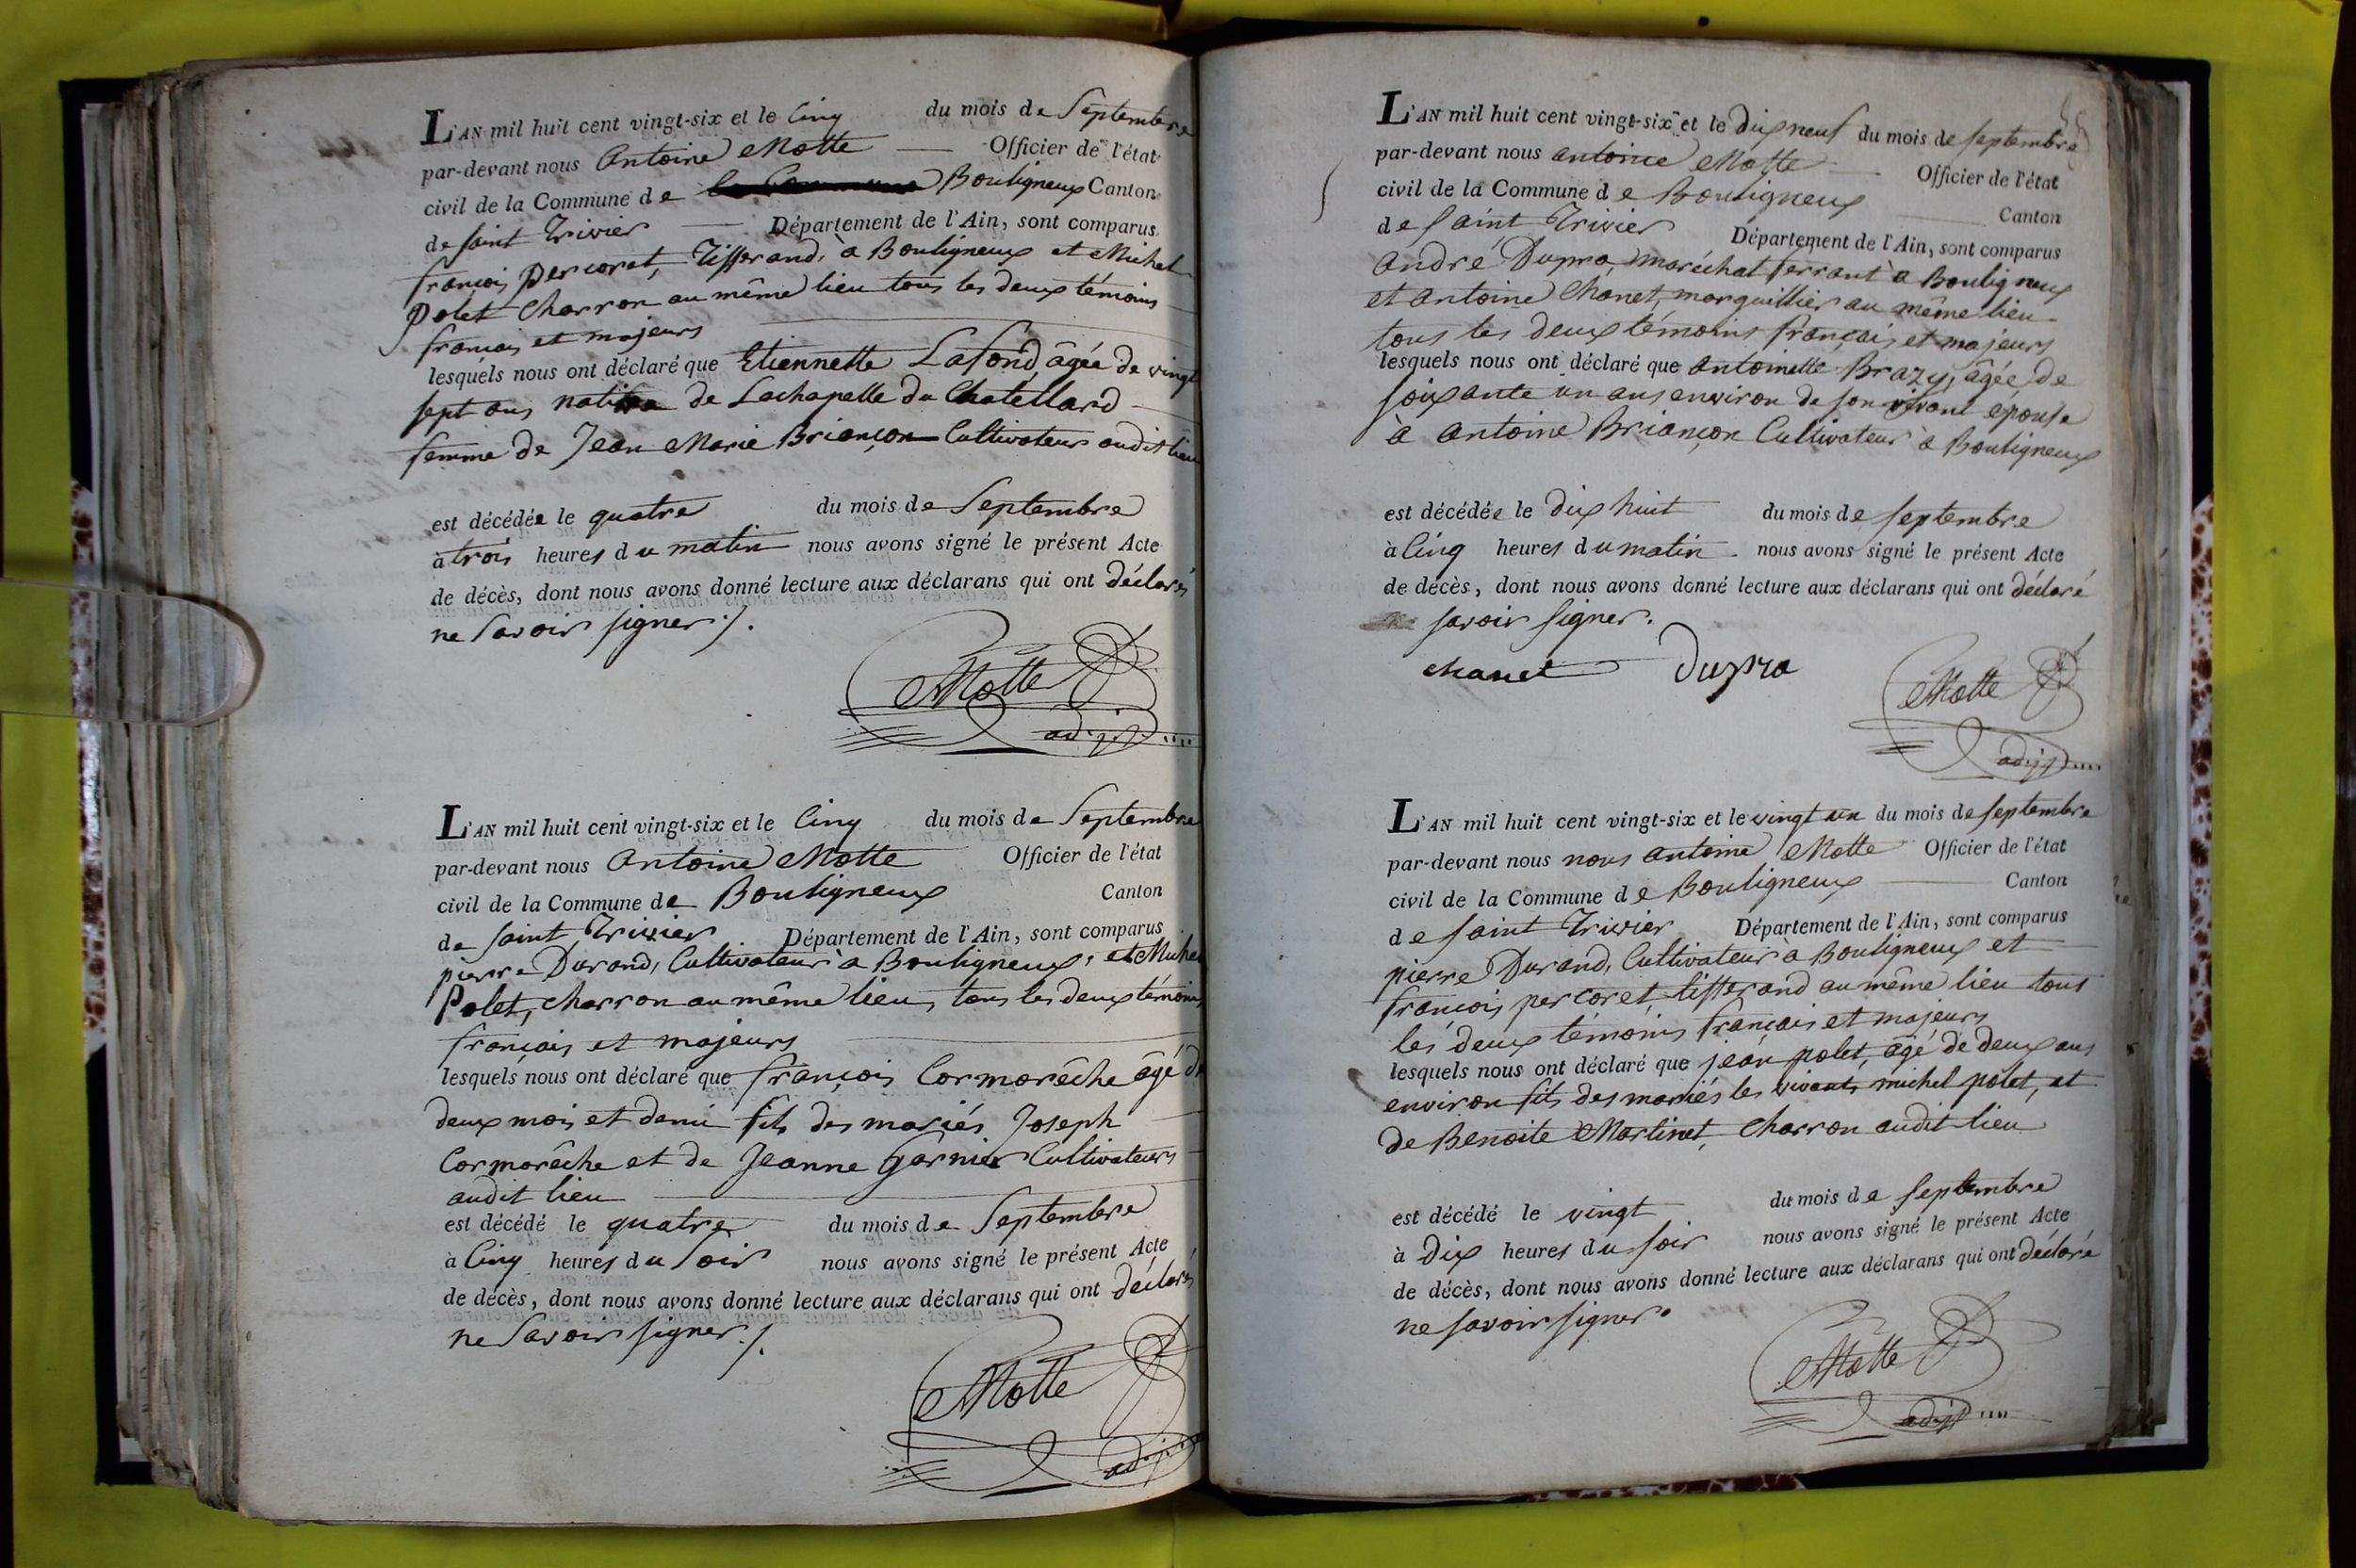 L'AN mil huit cent vingt-six et le Cinq du mois de Septembre
par-devant nous Antoine Motte Officier de l'état
civil de la Commune de Bouligneux Canton
de Saint Trivier Département de l'Ain, sont comparus
françois percoret, Tisserand, à Bouligneux et Michel
polet Charron au même lieu tous les deux témoins
français et majeurs
lesquels nous ont déclaré que Etiennette Lafond, âgée de vingt
sept ans, native de Lachapelle du Chatellard
femme de Jean Marie Briançon Cultivateur audit lieu
est décédée le quatre du mois de Septembre
à trois heures du matin nous avons signé le présent Acte
de décès, dont nous avons donné lecture aux déclarans qui ont déclarés
ne Savoir signer ./.
Motte
adj
L'AN mil huit cent vingt-six et le Cinq du mois de Septembre
par-devant nous Antoine Motte Officier de l'état
civil de la Commune de Bouligneux Canton
de Saint Trivier Département de l'Ain, sont comparus
pierre Durand, Cultivateur à Bouligneux, et Michel
Polet, charron au même lieu, tous les deux témoins
français et majeurs
lesquels nous ont déclaré que françois Cormorêche âgé de
deux mois et demi fils des mariés Joseph
Cormorêche et de Jeanne Garnier Cultivateurs
audit lieu
est décédé le quatre du mois de Septembre
à Cinq heures du Soir nous avons signé le présent Acte
de décès, dont nous avons donné lecture aux déclarans qui ont déclarés
ne Savoir signer ./.
Motte
adj
L'AN mil huit cent vingt-six et le Dix neuf du mois de septembre
par-devant nous antoine Motte Officier de l'état
civil de la Commune de Bouligneux Canton
de Saint Trivier Département de l'Ain, sont comparus
André Dupra, maréchal ferrant à Bouligneux
et antoine Chanet, marguillier au même lieu
tous les deux témoins français et majeurs
lesquels nous ont déclaré que antoinette Brazy, âgée de
soixante un ans environ de son vivant épouse
à antoine Briançon Cultivateur à Bouligneux
est décédée le Dix huit du mois de septembre
à Cinq heures du matin nous avons signé le présent Acte
de décès, dont nous avons donné lecture aux déclarans qui ont déclaré
savoir signer.
chanet Dupra
Motte
adj
L'AN mil huit cent vingt-six et le vingt un du mois de septembre
par-devant nous nous antoine Motte Officier de l'état
civil de la Commune de Bouligneux Canton
de Saint Trivier Département de l'Ain, sont comparus
pierre Durand, Cultivateur à Bouligneux et
françois percoret, tisserand au même lieu tous
les deux témoins français et majeurs
lesquels nous ont déclaré que jean polet, âgé de deux ans
environ fils des mariés les vivants michel polet, et
de Benoite Martinet, charron audit lieu
est décédé le vingt du mois de septembre
à Dix heures du soir nous avons signé le présent Acte
de décès, dont nous avons donné lecture aux déclarans qui ont déclaré
ne savoir signer.
Motte
adj